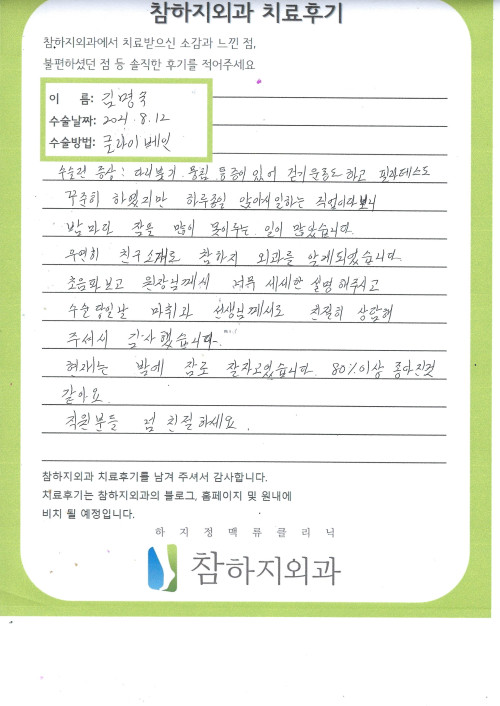 참하지외과 치료후기
참하지외과에서 치료받으신 소감과 느낀 점,
불편하셨던 점 등 솔직한 후기를 적어주세요
이 름: 김명숙
수술날짜: 2021. 8. 12
수술방법: 클라이 베인
수술전 증상: 다리붓기. 뭉침 통증이 있어 걷기운동도 하고 필라테스도
꾸준히 하였지만 하루종일 앉아서일하는 직업이다보니
밤마다 잠을 많이 못이루는 일이 많았습니다.
우연히 친구소개로 참하지 외과를 알게되었습니다.
초음파보고 원장님께서 너무 세세한 설명해주시고
수술 당일날 마취과 선생님께서도 친절히 상담해
주셔서 감사했습니다.
현재는 밤에 잠도 잘자고있습니다. 80%이상 좋아진것
같아요.
직원분들 넘 친절하세요.
참하지외과 치료후기를 남겨 주셔서 감사합니다.
치료후기는 참하지외과의 블로그, 홈페이지 및 원내에
비치 될 예정입니다.
하지정맥류클리닉
참하지외과